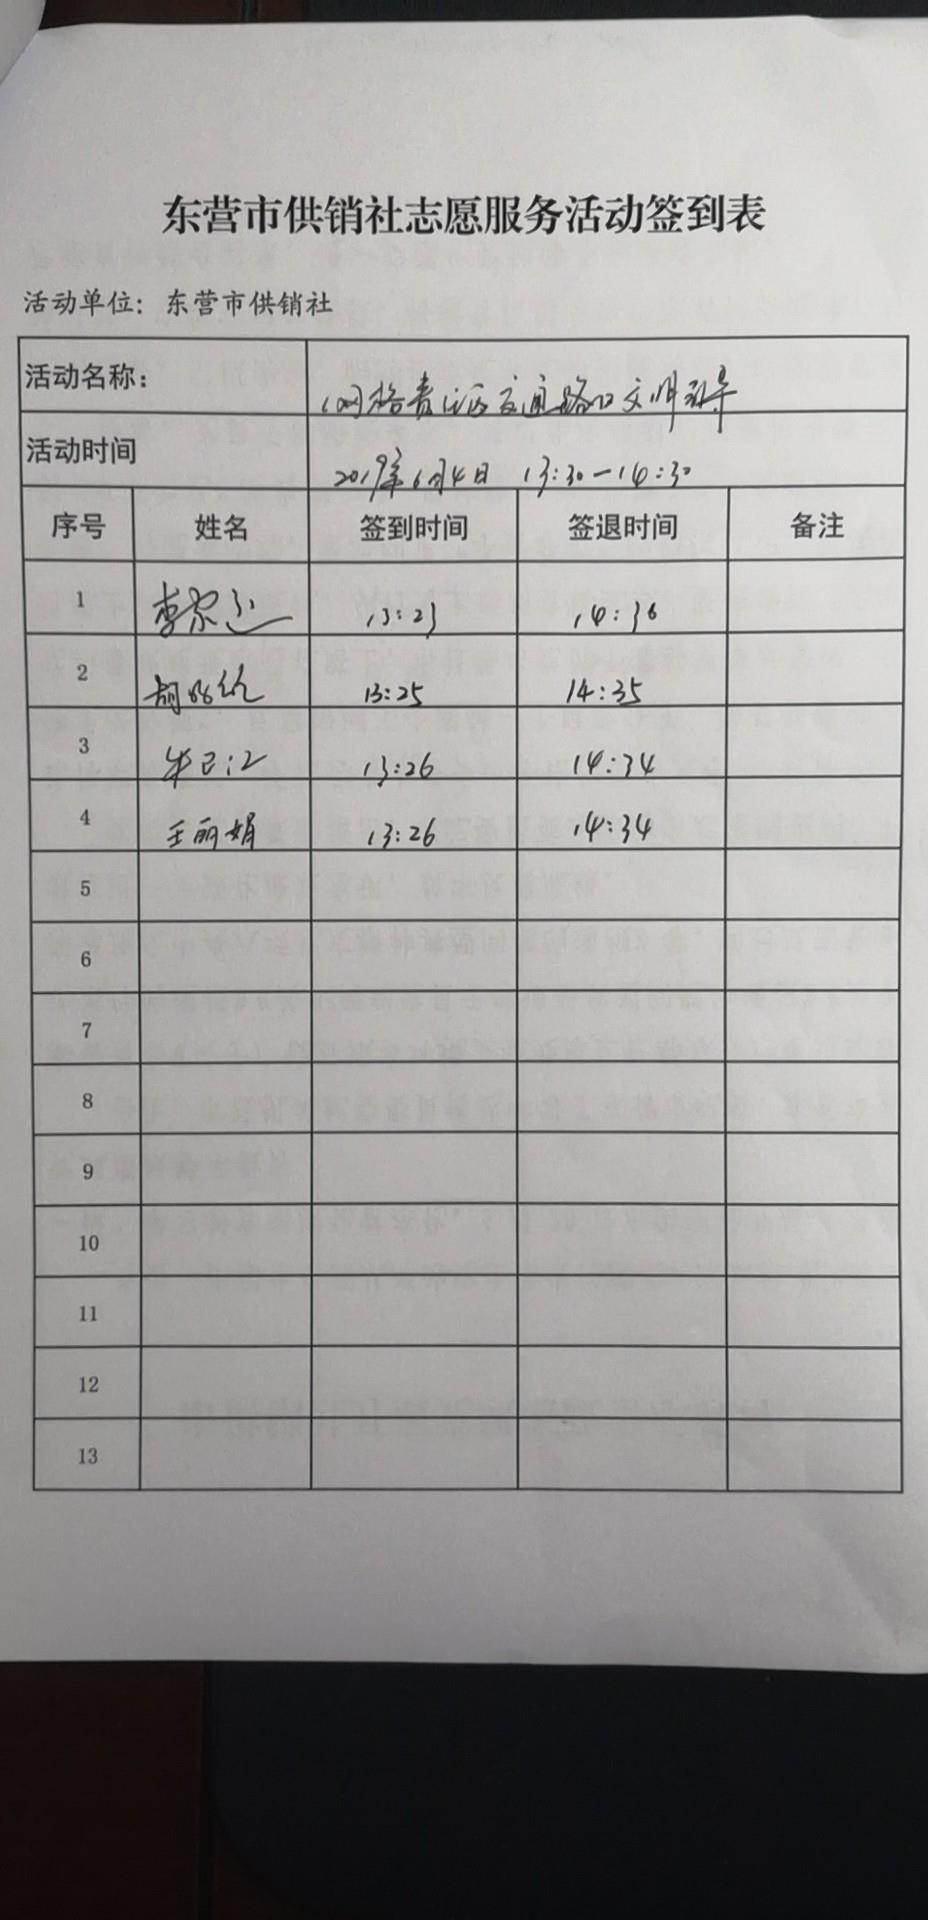 东营市供销社志愿服务活动签到表
活动单位: 东营市供销社
活动名称: 网格责任区交通路口文明劝导
活动时间 2019年6月4日 13:30—14:30
序号 姓名 签到时间 签退时间 备注
1 李家 13:23 14:36
2 胡 13:25 14:35
3 13:26 14:34
4 王丽娟 13:26 14:34
5
6
7
8
9
10
11
12
13